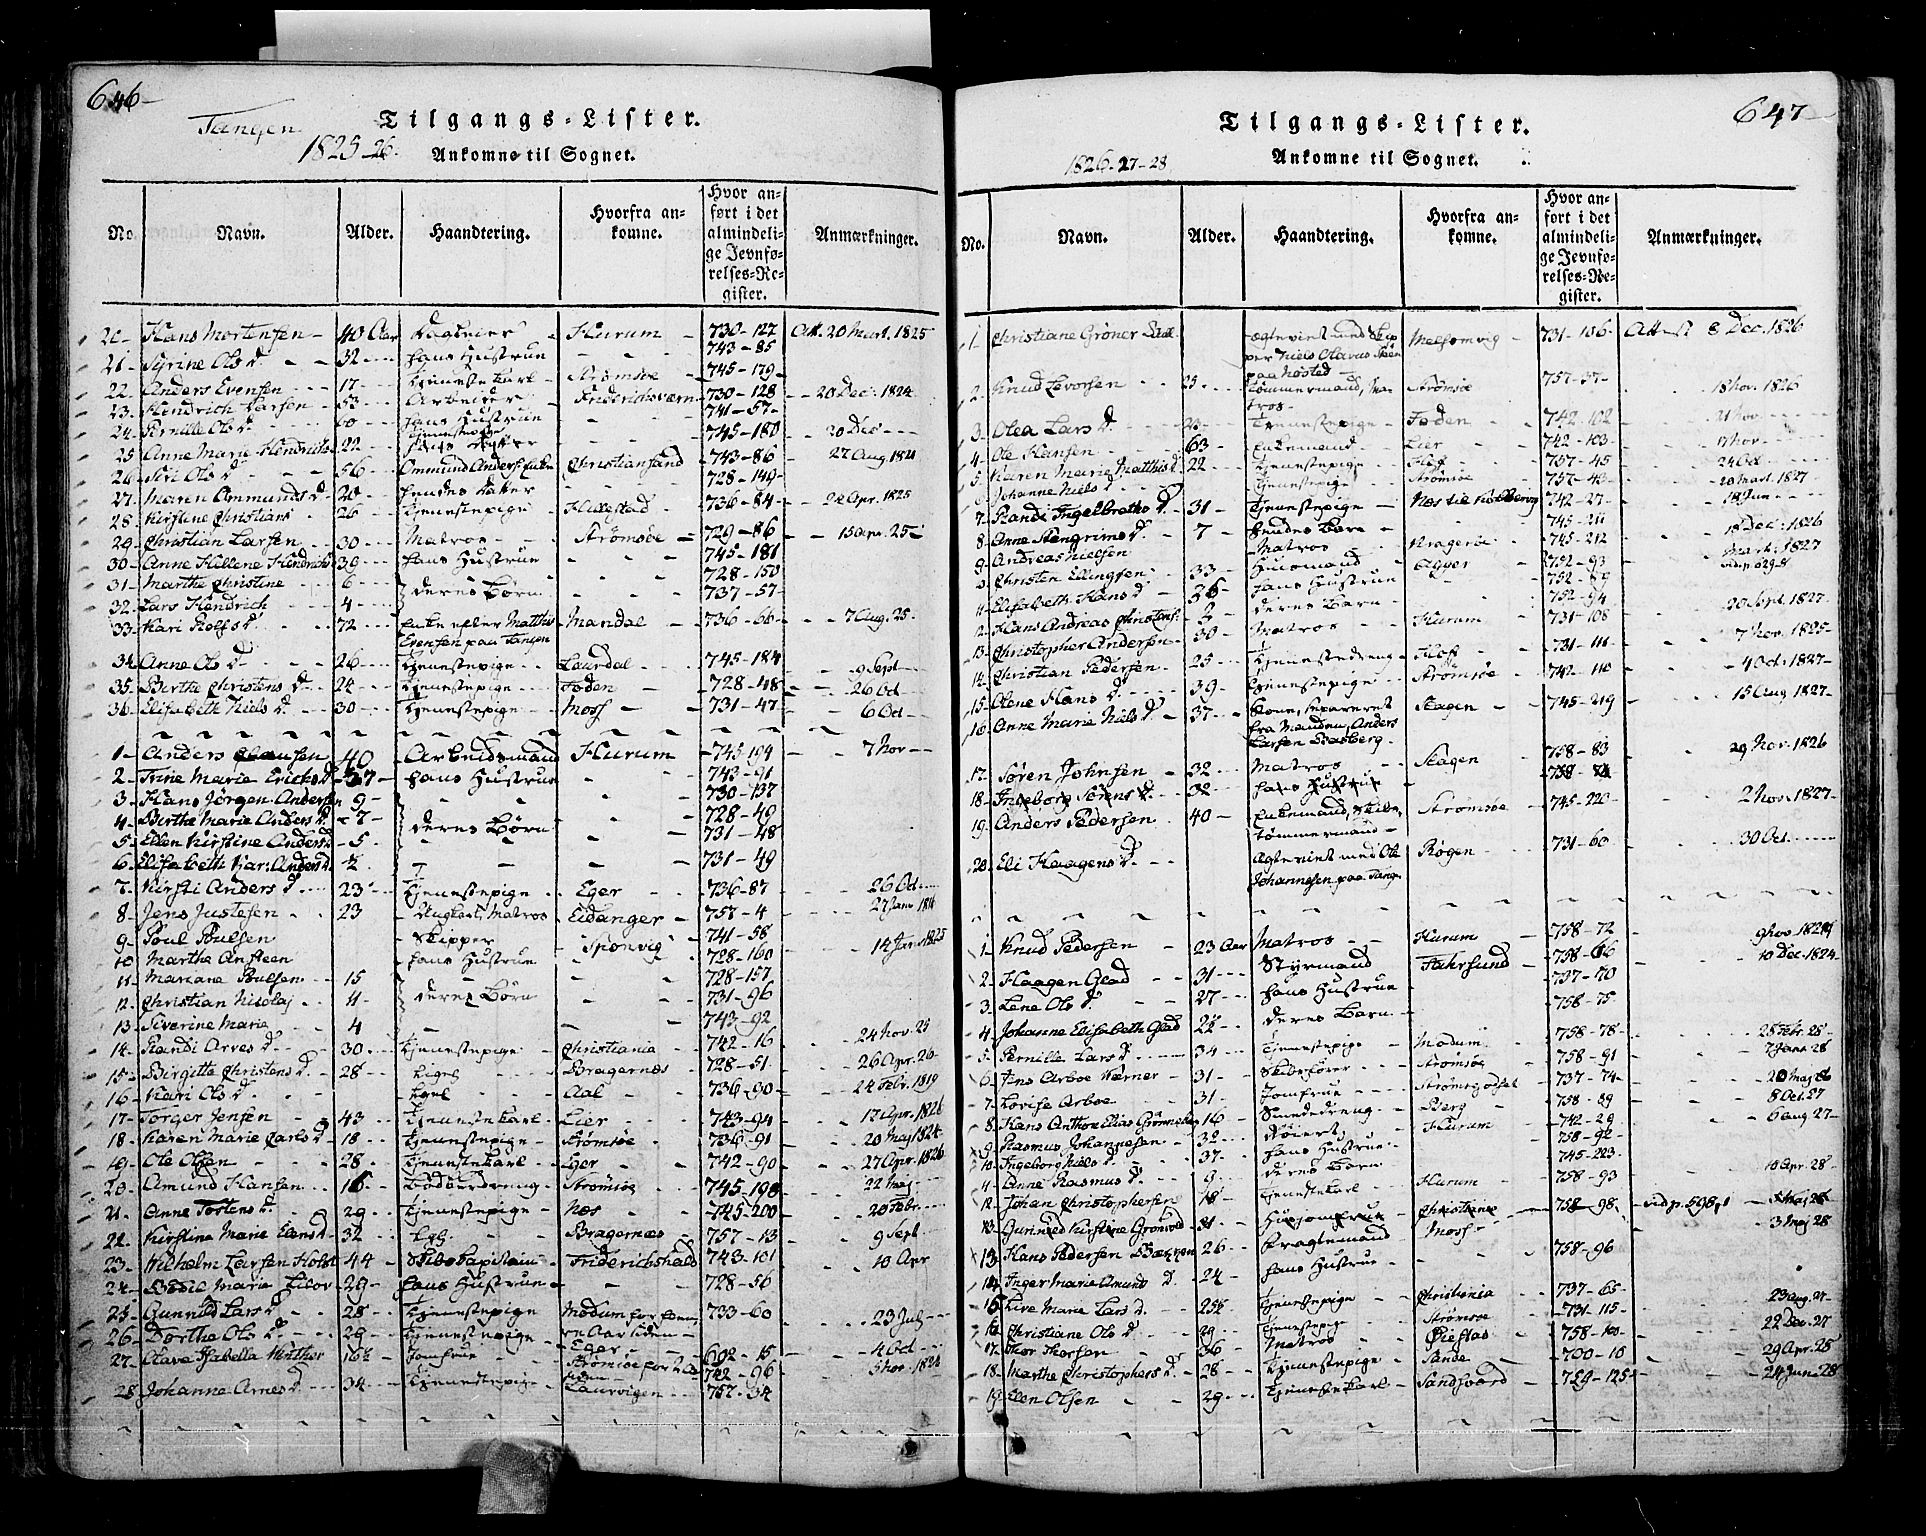 646
Tangen
1825-26.
Tilgangs-Lister.
Ankomne til Sognet.
No. Navn. Alder. Haandtering. Hvorfra ankomne. Hvor anført i det almindelige Jevnførelses-Register. Anmærkninger.
20- Hans Mortensen - 40 Aar Hurum - 730-127 Att. 20 Mart. 1825
21- Syrine Ols d. 32 hans Hustrue 743-85
22- Anders Evensen 17 Tjenestekarl Strømsøe 745-179
23- Hendrich Larsen 53 Arbeider Friderichsværn 730-128 20 Dec. 1824
24- Pernille Ols d. 60 hans Hustrue 741-57
25 Anne Marie Hendrichs 22 Tjenestepige 745-180 20 Dec
26- Siri Ols d. 56 Christiansand 743-86 27 Aug. 1821
27- Maren Ommunds d. 20 hendes Datter 728-149
28- Kirstine Christians 26 Tjenestepige 736-84 22 Apr. 1825
29- Christian Larsen 30 Matros Strømsøe 729-86 15 Apr. 25
30- Anne Hellene Hendrichs 39 hans Hustrue 745-181
31- Marthe Christine 6 deres Børn 728-150
32- Lars Hendrich 4 737-57
33- Kari Rolfs d. 72 Enke efter Matthis Evensen paa Tangen Mandal 736-66 7 Aug. 25
34- Anne Ols d. 26 Tjenestepige Laurdal 745-184 9 Sept
35- Berthe Christens d. 24 Tjenestepige Foden 728-48 26 Oct
36- Elisabeth Niels d. 30 Tjenestepige Moss 731-47 6 Oct
1- Anders Claussen 40 Arbeidsmand Hurum 745-191 7 Nov
2- Trine Marie Erichs d. 37 hans Hustrue 743-91
3- Hans Jørgen Andersen 9 730-137
4- Berthe Marie Anders d. 7 deres Børn 728-49
5- Ellen Kirstine Anders d. 5 731-48
6- Elisabeth Kar: Anders d. ½ 731-49
7- Kirsti Anders d. 23 Tjenestepige Eger 736-87 26 Oct
8- Jens Justesen 23 Ungkarl, Matros Eidanger 757-4 27 Jan
9- Poul Poulsen Skipper Sponvig 741-58 14 Jan. 1825
10 Marthe Ansteen hans Hustrue 728-160
11- Mariane Poulsen 15 deres Børn 728-157
12- Christian Nicolaj 11 731-96
13- Siverine Marie 4 743-92
14- Randi Arves d. 30 Tjenestepige Christiania 742-16 24 Nov. 25
15- Birgitte Christens d. 28 Ligel. Bragernæs 728-51 26 Apr. 26
16- Kari Ols d. Ligel Aal 736-90 24 Febr. 1819
17- Torger Jensen 43 Tjenestekarl Lier 743-94 17 Apr. 1826
18- Karen Marie Carls d. 18 Tjenestepige Strømsøe 736-91 20 Maj 1824
19- Ole Olsen 28 Tjenestekarl Eger 742-90 27 Apr. 1826
20- Amund Hansen 16 Bødkerdreng Strømsøe 745-198 22 Maj
21- Anne Tostens d. 29 Tjenestepige Næs 745-200 20 Febr.
22- Kirstine Marie Elans d. 32 Lgl. Bragernæs 757-13 9 Sept
23- Wilhelm Larsen Holst 44 Skibs Capitain Friderichshald 743-101 10 Apr
24- Bodil Marie 29 hans Hustrue 728-56
25- Gunnild Lars d. 28 Tjenestepige Modum for 733-60 23 July
26- Dorthe Ols d. 29 Tjenestepige Eger 692-15 4 Oct
27- Olava Isabella 16½ Jomfrue Strømsøe for 2 Aar siden 742-96 5 Nov. 1824
28 Johanne Arnes d. 34 Tjenestepige Laurvigen 757-34
647
Tilgangs-Lister.
Ankomne til Sognet.
1826-27-28
No. Navn. Alder. Haandtering. Hvorfra ankomne. Hvor anført i det almindelige Jevnførelses-Register. Anmærkninger.
1 Christiane Gröner Ægteviet med Skipper Niels Olavus paa Melsomvig 731-106 Att. 8 Dec. 1826
2. Knud Levorsen 25 Tømmermand, Matros Strømsøe 757-37 18 Nov. 1826
3- Olea Lars d. Tjenestepige Foden 742-102 21 Nov.
4- Ole Hansen 63 Enkemand Lier 742-103 17 Nov
5 Karen Marie Matthis d. 22 Tjenestepige Hoff 757-45 24 Oct
6 Johanne Niels d. Tjenestepige Strømsøe 757-43 20 Mart. 1827
7- Randi Ingelbreths d. 31 Tjenestepige Næs 742-27 18 Jun
8- Anne Stengrims d. 7 hendes Barn 745-211
9- Andreas Nielsen Matros Kragerøe 745-212 18 Dec. 1826
Christen Ellingsen 33 Huusmand Agger 752-93 Mart. 1827
11- Elisabeth Hans d. 36 hans Hustrue 752-89
12- Hans Andreas Christens: deres Barn 752-94
13- Christopher Andersen 30 Matros Hurum 731-108 20 Sept. 1827
14- Christian Pedersen 25 Tjenestedreng Hoff 731-111 7 Nov. 1825
15- Olene Hans d. 39 Tjenestepige Strømsøe 742-110 4 Oct. 1827
16- Anne Marie Niels d. 37 Kone, separeret fra Manden, Anders Larsen Skagen 745-219 15 Aug 1827
17- Søren Johnsen 32 Matros Skagen 758-83 29 Nov. 1826
18- Ingeborg Sørens d. 32 hans Hustrue
19- Anders Pedersen 40 Enkemand, Skibstømmermand Strømsøe 745-220 2 Nov. 1827
20- Eli Haagens d. Ægteviet med Ole Johannesen paa Tang. Røgen 731-60 30 Oct.
1- Knud Pedersen 23 Aar Matros Hurum 758-72 9 Nov.
2- Haagen Glad 31 Styrmand Fahrsund 758-66 10 Dec. 1824
3- Lene Ols d. 27 hans Hustrue 737-70
4- Johanne Elisabeth Glad deres Barn 758-75
5- Pernille Lars d. 34 Tjenestepige Modum 758-78 25 Febr. 28
6- Jens Arboe Kærner 31 Skibsfører Strømsøe 758-91 7 Janr. 28
7- Lovise Arboe 31 Jomfrue Strømsgodset 737-74 20 Maj
8- Hans Anthon Elias Grønneberg 16 Smededreng Berg 758-89 8 Oct. 27
9- Rasmus Johannesen 32 Hurum 742-29 6 Aug 27
10- Ingeborg Niels d. 37 hans Hustrue 758-92
11- Anne Rasmus d. 9 deres Barn 745-223
12- Johan Christophersen 18 Tjenestekarl Hurum 758-93 10 Apr. 28
13- Gunnild Kirstine Grønvold 31 Huusjomfrue Christiania 758-98 vid p. 598,1 5 Maj 28
13- Hans Pedersen Bækken 26 Fragtemand Moss 3 Maj 28
14- Inger Marie Amund d. 24 hans Hustrue 758-96
15- Live Marie Lars d. 25½ Tjenestepige Christiania 737-65 23 Aug. 27
16- Christiane Ols d. 29 Tjenestepige Strømsøe 731-115 22 Dec. 27
17- Thor Thorsen 36 Matros Øiestad 758-100
18- Marthe Christophers d. 28 Tjenestepige Sande 700-10 29 Apr. 25
19- Even Olsen 29 Tjenestekarl Sandsværd 759-125 24 Jun. 28